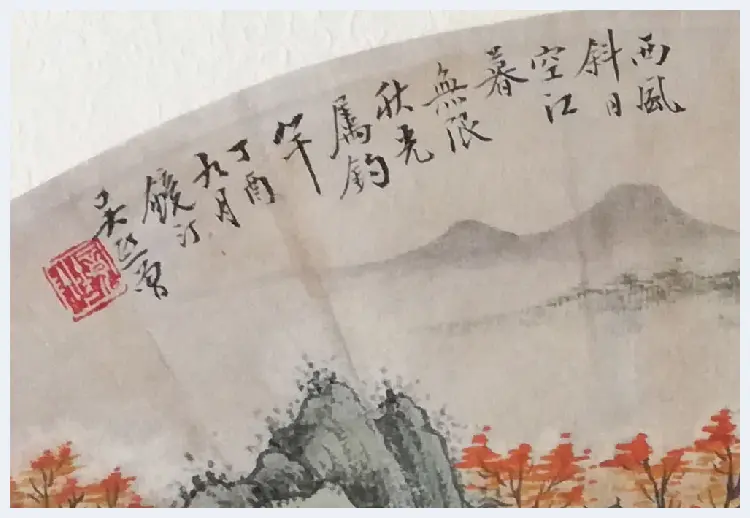 西風
斜日
空江
暮
無限
秋光
屬釣
竿
丁酉
九月
鏡汀
吳熙曾